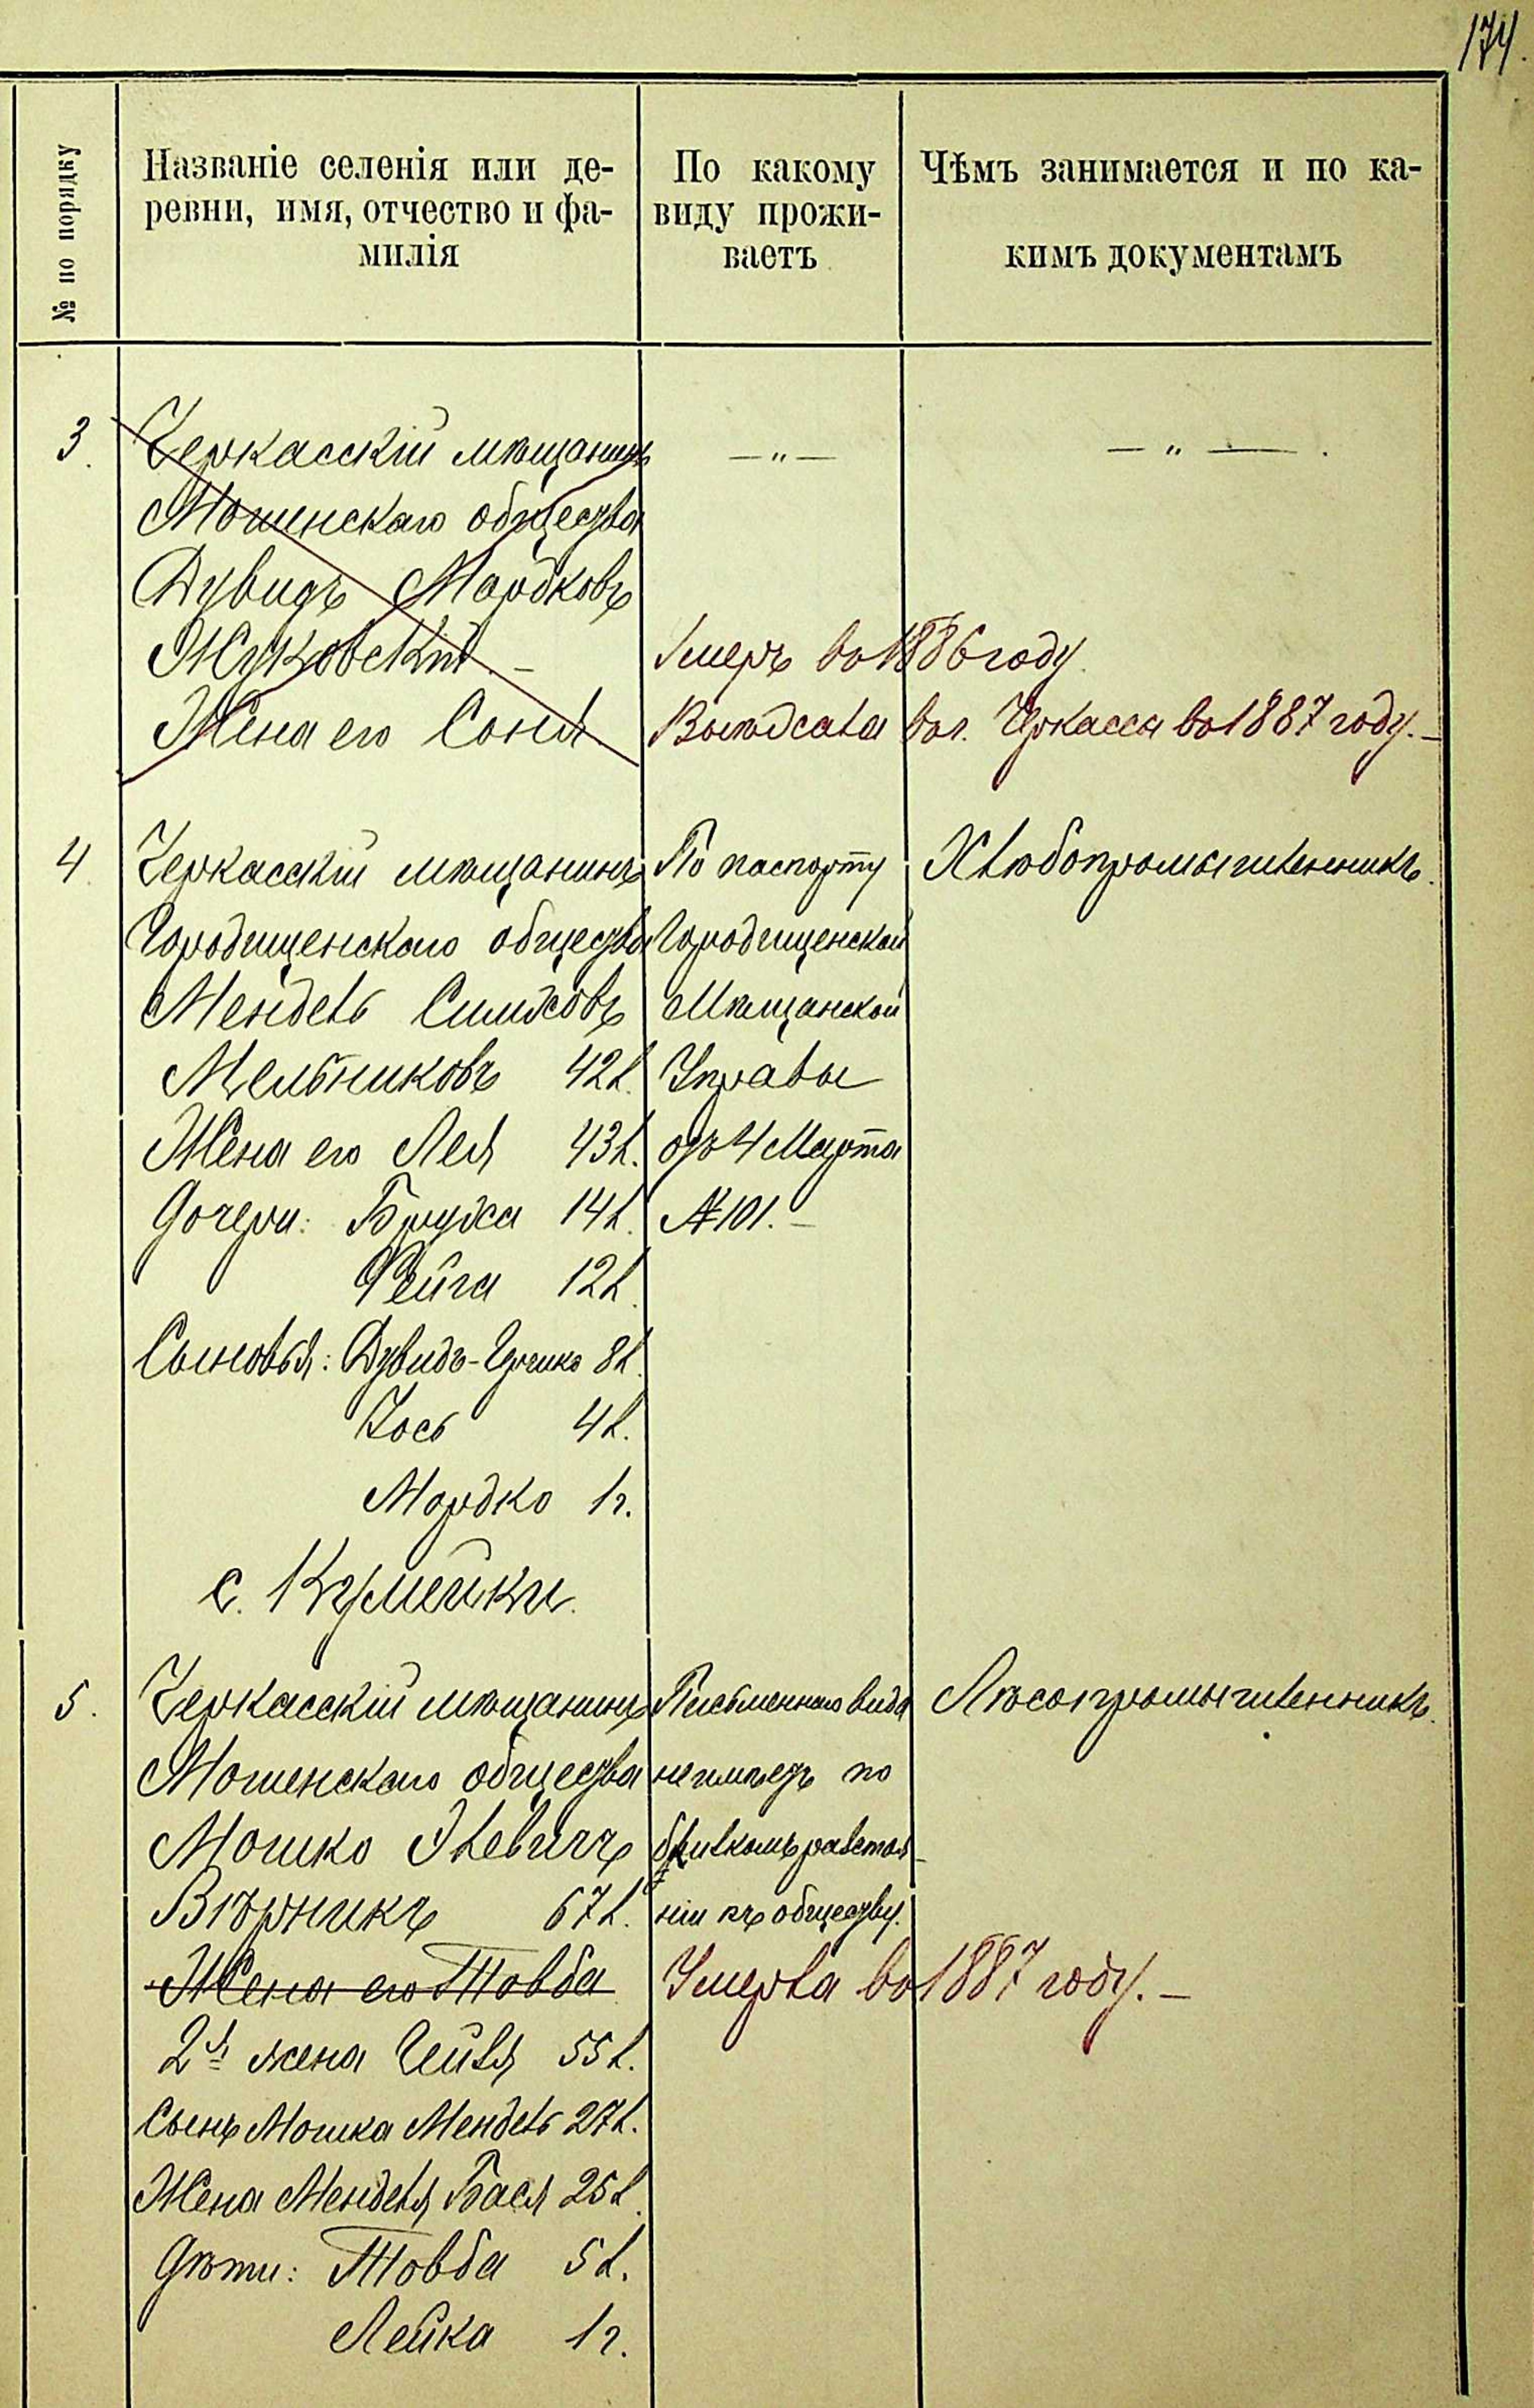 174.
№ по порядку
Названіе селенія или де-
ревни, имя, отчество и фа-
милія
По какому
виду прожи-
ваетъ
Чѣмъ занимается и по ка-
кимъ документамъ
3. Черкасскій мѣщанинъ — „ — — „ — .
Мошенскаго общества
Дувидъ Мордковъ
Жуковскій. — Умеръ въ 1886 году.
Жена его Соня Выѣхала въ г. Черкассы въ 1887 году. —
4. Черкасскій мѣщанинъ По паспорту Хлѣбопромышленникъ.
Городищенскаго общества Городищенской
Мендель Симховъ Мѣщанской
Мельниковъ 42 л. Управы
Жена его Лея 43 л. отъ 4 Марта
Дочери: Бруха 14 л. № 101. —
Фейга 12 л.
Сыновья: Дувидъ-Гершко 8 л.
Іось 4 л.
Мордко 1 г.
с. Кумейки.
5. Черкасскій мѣщанинъ Письменнаго вида Лѣсопромышленникъ.
Мошенскаго общества неимѣетъ по
Мошко Элевичъ близкомъ растоя-
Вѣрникъ 67 л. ніи къ обществу.
Жена его Товба Умерла въ 1887 году. —
2я жена Сейвя 55 л.
Сынъ Мошка Мендель 27 л.
Жена Менделя Бася 25 л.
Дѣти: Товба 5 л.
Лейка 1 г.